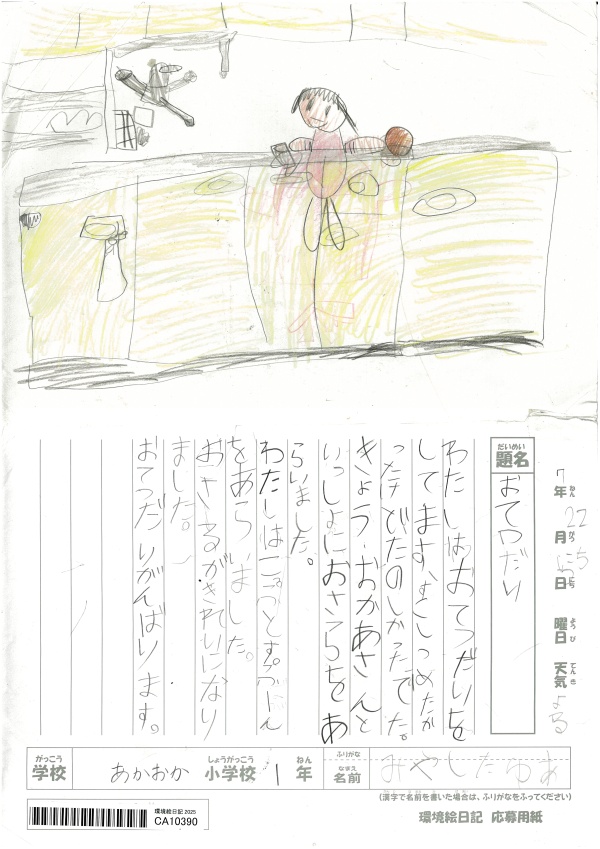 7年22月にち日曜日天気よる
ねん がつ にち ようび てんき
だいめい
題名 おてつだい
わたしは、おてつだいを
してます。すこしつめたか
ったけどたのしかったでた。
きょう、おかあさんと
いっしょにおさらをあ
らいました。
わたしは、こっぷとすぷーん
をあらいました。
おさらがきれいになり
ました。
おてつだいがんばります。
がっこう しょうがっこう ねん
学校 あかおか 小学校 1年
ふりがな
なまえ
名前 みやした ゆあ
(漢字で名前を書いた場合は、ふりがなをふってください)
環境絵日記 2025
CA10390
環境絵日記 応募用紙